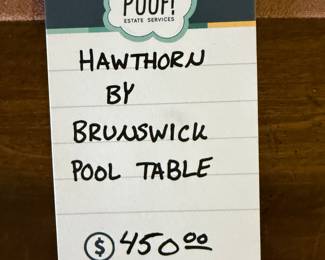 POOF!
ESTATE SERVICES
HAWTHORN
BY
BRUNSWICK
POOL TABLE
$ 450.00